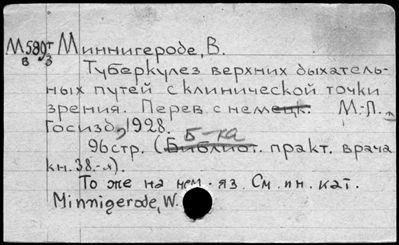 М589т Миннигероде, В.
в 3
Туберкулез верхних дыхатель-
ных путей с клинической точки
зрения. Перев с немецк. М.-Л.,
Госизд, 1928.
Б-ка
96 стр. (Библиот. практ. врача
кн. 38.-я).
То же на нем. яз. См. ин. кат.
Minnigerode, W.